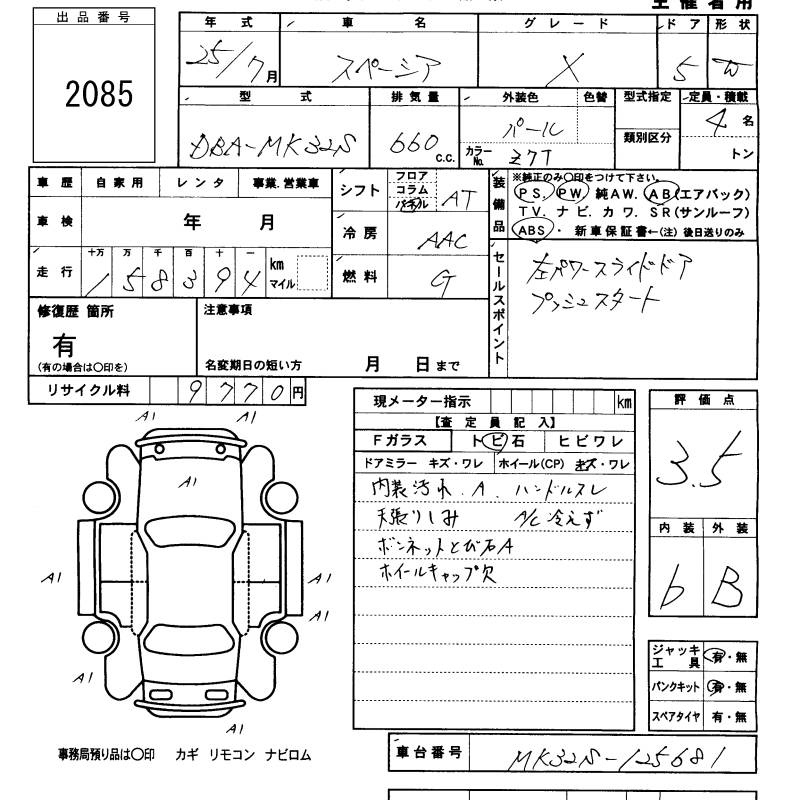 出品番号
2085
年式 車名 グレード ドア 形状
25/7月 スペーシア X 5 W
型式 排気量 外装色 色替 型式指定 定員・積載
DBA-MK32S 660 c.c. パール 類別区分 4名
カラーNo. Z7T トン
車歴 自家用 レンタ 事業.営業車
車検 年 月
走行 十万 万 千 百 十 一
1 5 8 3 9 4 km マイル
シフト フロア コラム パネル AT
冷房 AAC
燃料 G
装備品
※純正のみ〇印をつけて下さい。
PS. PW. 純AW. AB(エアバック)
TV. ナビ. カワ. SR(サンルーフ)
ABS ・ 新車保証書←(注) 後日送りのみ
セールスポイント
左パワースライドドア
プッシュスタート
修復歴 箇所
有
(有の場合は〇印を)
注意事項
名変期日の短い方 月 日まで
リサイクル料 9770円
現メーター指示 km
【査定員記入】
Fガラス トビ石 ヒビワレ
ドアミラー キズ・ワレ ホイール(CP) キズ・ワレ
内装汚れ.A. ハンドルスレ
天張りしみ A/C冷えず
ボンネットとび石A
ホイールキャップ欠
評価点
3.5
内装 外装
b B
ジャッキ工具 有・無
パンクキット 有・無
スペアタイヤ 有・無
A1 A1
A1
A1 A1
A1
A1
A1
事務局預り品は〇印 カギ リモコン ナビロム
車台番号 MK32S-125681